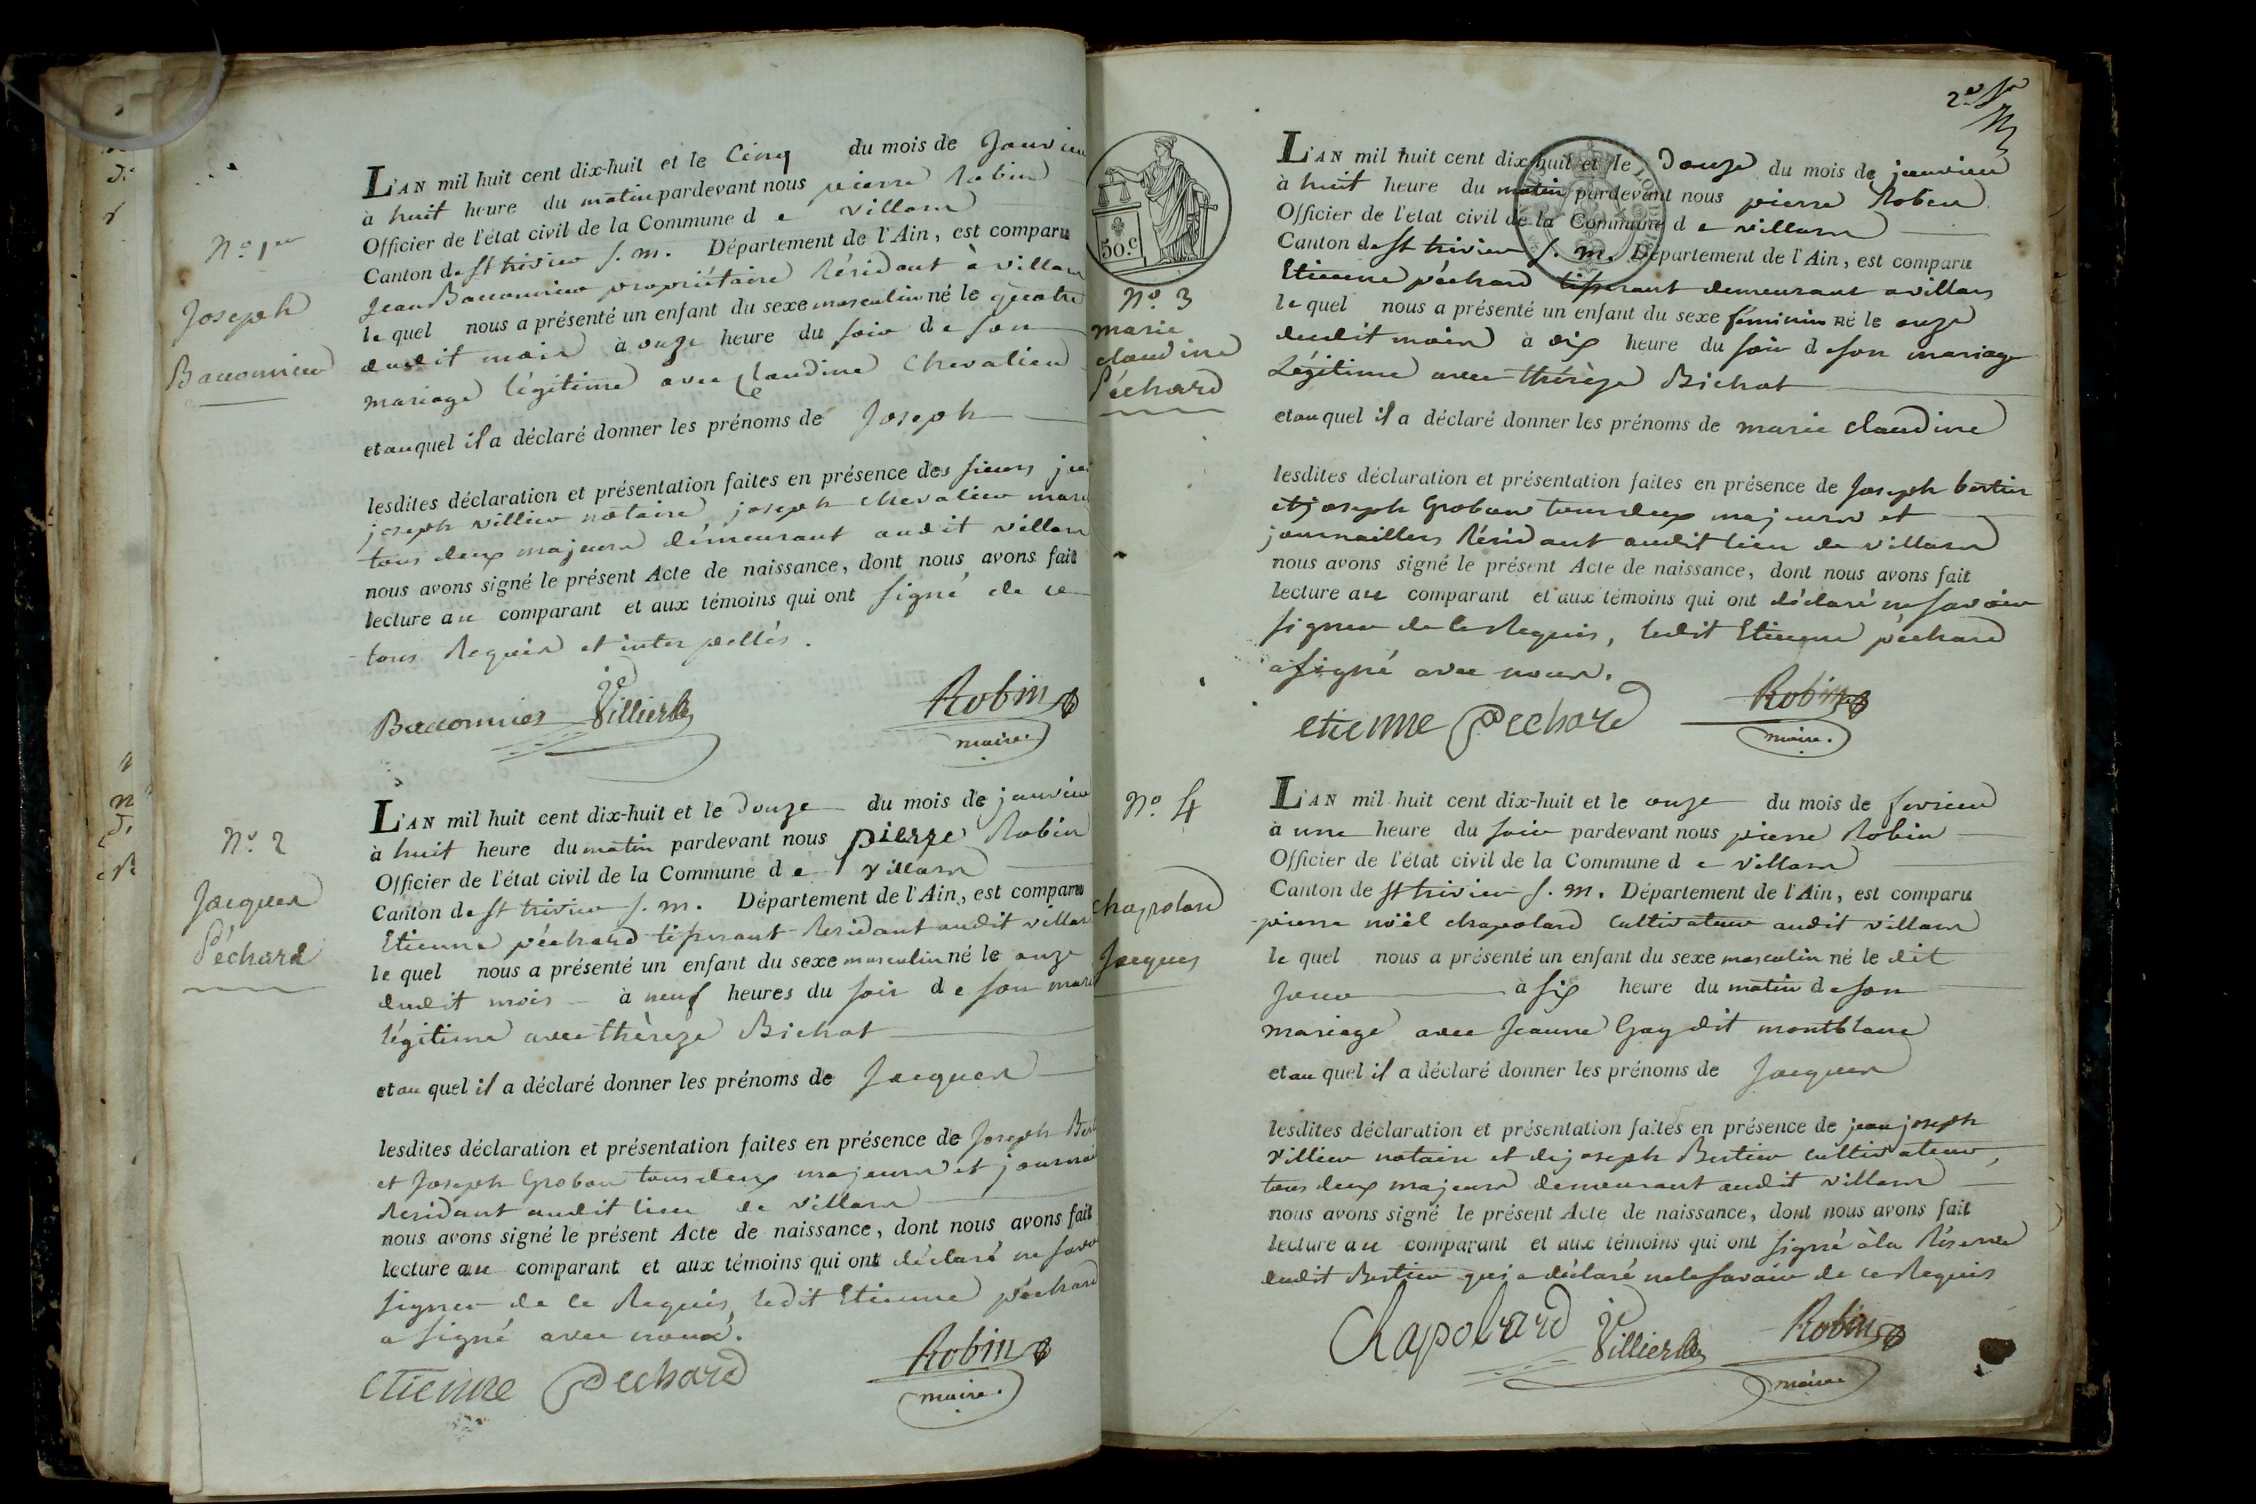 N.o 1er
Joseph
Baccounier
L'AN mil huit cent dix-huit et le Cinq du mois de Janvier
à huit heure du matin pardevant nous pierre Robin
Officier de l'état civil de la Commune d e villars
Canton de St trivier S. M. Département de l'Ain, est comparu
Jean Baccounier propriétaire Résidant à villars
le quel nous a présenté un enfant du sexe masculin né le quatre
dudit mois à onze heure du soir d e son
mariage légitime avec Claudine Chevalier
et au quel il a déclaré donner les prénoms de Joseph
lesdites déclaration et présentation faites en présence des sieurs
joseph villier notaire joseph chevalier
tous deux majeurs demeurant audit villars
nous avons signé le présent Acte de naissance, dont nous avons fait
lecture au comparant et aux témoins qui ont signé de ce
tous Requis et interpellés.
Baccounier Villier Robin
maire
N.o 2
Jacques
Péchard
L'AN mil huit cent dix-huit et le Douze du mois de janvier
à huit heure du matin pardevant nous pierre Robin
Officier de l'état civil de la Commune d e villars
Canton de St trivier S. M. Département de l'Ain, est comparu
Etienne péchard tisserant Residant audit villars
le quel nous a présenté un enfant du sexe masculin né le onze
dudit mois à neuf heures du soir d e son
légitime avec thèreze Bichat
et au quel il a déclaré donner les prénoms de Jacques
lesdites déclaration et présentation faites en présence de Joseph
et Joseph Groban tous deux majeurs et
Residant audit lieu de villars
nous avons signé le présent Acte de naissance, dont nous avons fait
lecture au comparant et aux témoins qui ont déclaré ne
signer de ce Requis, ledit Etienne péchard
a signé avec nous.
etienne Pechard Robin
maire
2e
50.c
N.o 3
marie
claudine
Péchard
L'AN mil huit cent dix-huit et le Douze du mois de janvier
à huit heure du matin pardevant nous pierre Robin
Officier de l'état civil de la Commune d e villars
Canton de St trivier S. M. Département de l'Ain, est comparu
Etienne péchard tisserant demeurant a villars
le quel nous a présenté un enfant du sexe féminin né le onze
dudit mois à dix heure du soir d e son mariage
Légitime avec thérèze Bichat
et au quel il a déclaré donner les prénoms de marie claudine
lesdites déclaration et présentation faites en présence de Joseph bertier
et joseph Groban tous deux majeurs et
journailliers Résidant audit lieu de villars
nous avons signé le présent Acte de naissance, dont nous avons fait
lecture au comparant et aux témoins qui ont déclaré ne savoir
signer de ce Requis, ledit Etienne péchard
a signé avec nous.
etienne Pechard Robin
maire.
N.o 4
Chapolard
Jacques
L'AN mil huit cent dix-huit et le onze du mois de fevrier
à une heure du soir pardevant nous pierre Robin
Officier de l'état civil de la Commune d e villars
Canton de St trivier S. M. Département de l'Ain, est comparu
pierre noël chapolard Cultivateur audit villars
le quel nous a présenté un enfant du sexe masculin né le dit
Jour à six heure du matin d e son
mariage avec Jeanne Gay dit montblanc
et au quel il a déclaré donner les prénoms de Jacques
lesdites déclaration et présentation faites en présence de jean joseph
Villier notaire et de joseph Bertier Cultivateur,
tous deux majeurs demeurant audit villars
nous avons signé le présent Acte de naissance, dont nous avons fait
lecture au comparant et aux témoins qui ont signé à la Réserve
dudit Bertier qui a déclaré ne le savoir de ce Requis
Chapolard Villier Robin
maire